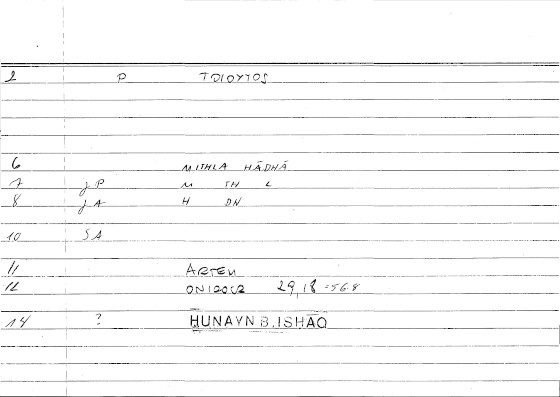 2 P TOIOYTOS
6 MITHLA HĀDHĀ
7 JP M TH L
8 JA H DN
10 SA
11 ARTEM
12 ONIROCR 29,18 =568
14 ? HUNAYN B. ISHĀQ